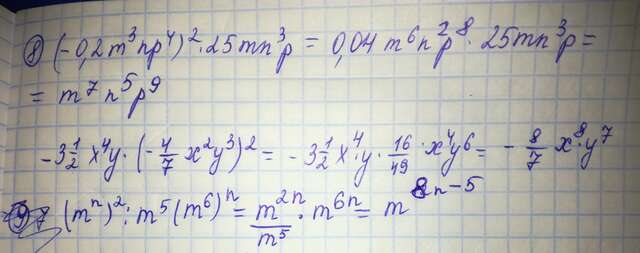 8) (-0,2m³np⁴)²·25mn³p = 0,04m⁶n²p⁸·25mn³p =
= m⁷n⁵p⁹
-3 1/2 x⁴y·(-4/7 x²y³)² = -3 1/2 x⁴·y·16/49·x⁴y⁶ = -8/7 x⁸·y⁷
7 (mⁿ)²:m⁵(m⁶)ⁿ = m²ⁿ/m⁵·m⁶ⁿ = m⁸ⁿ⁻⁵